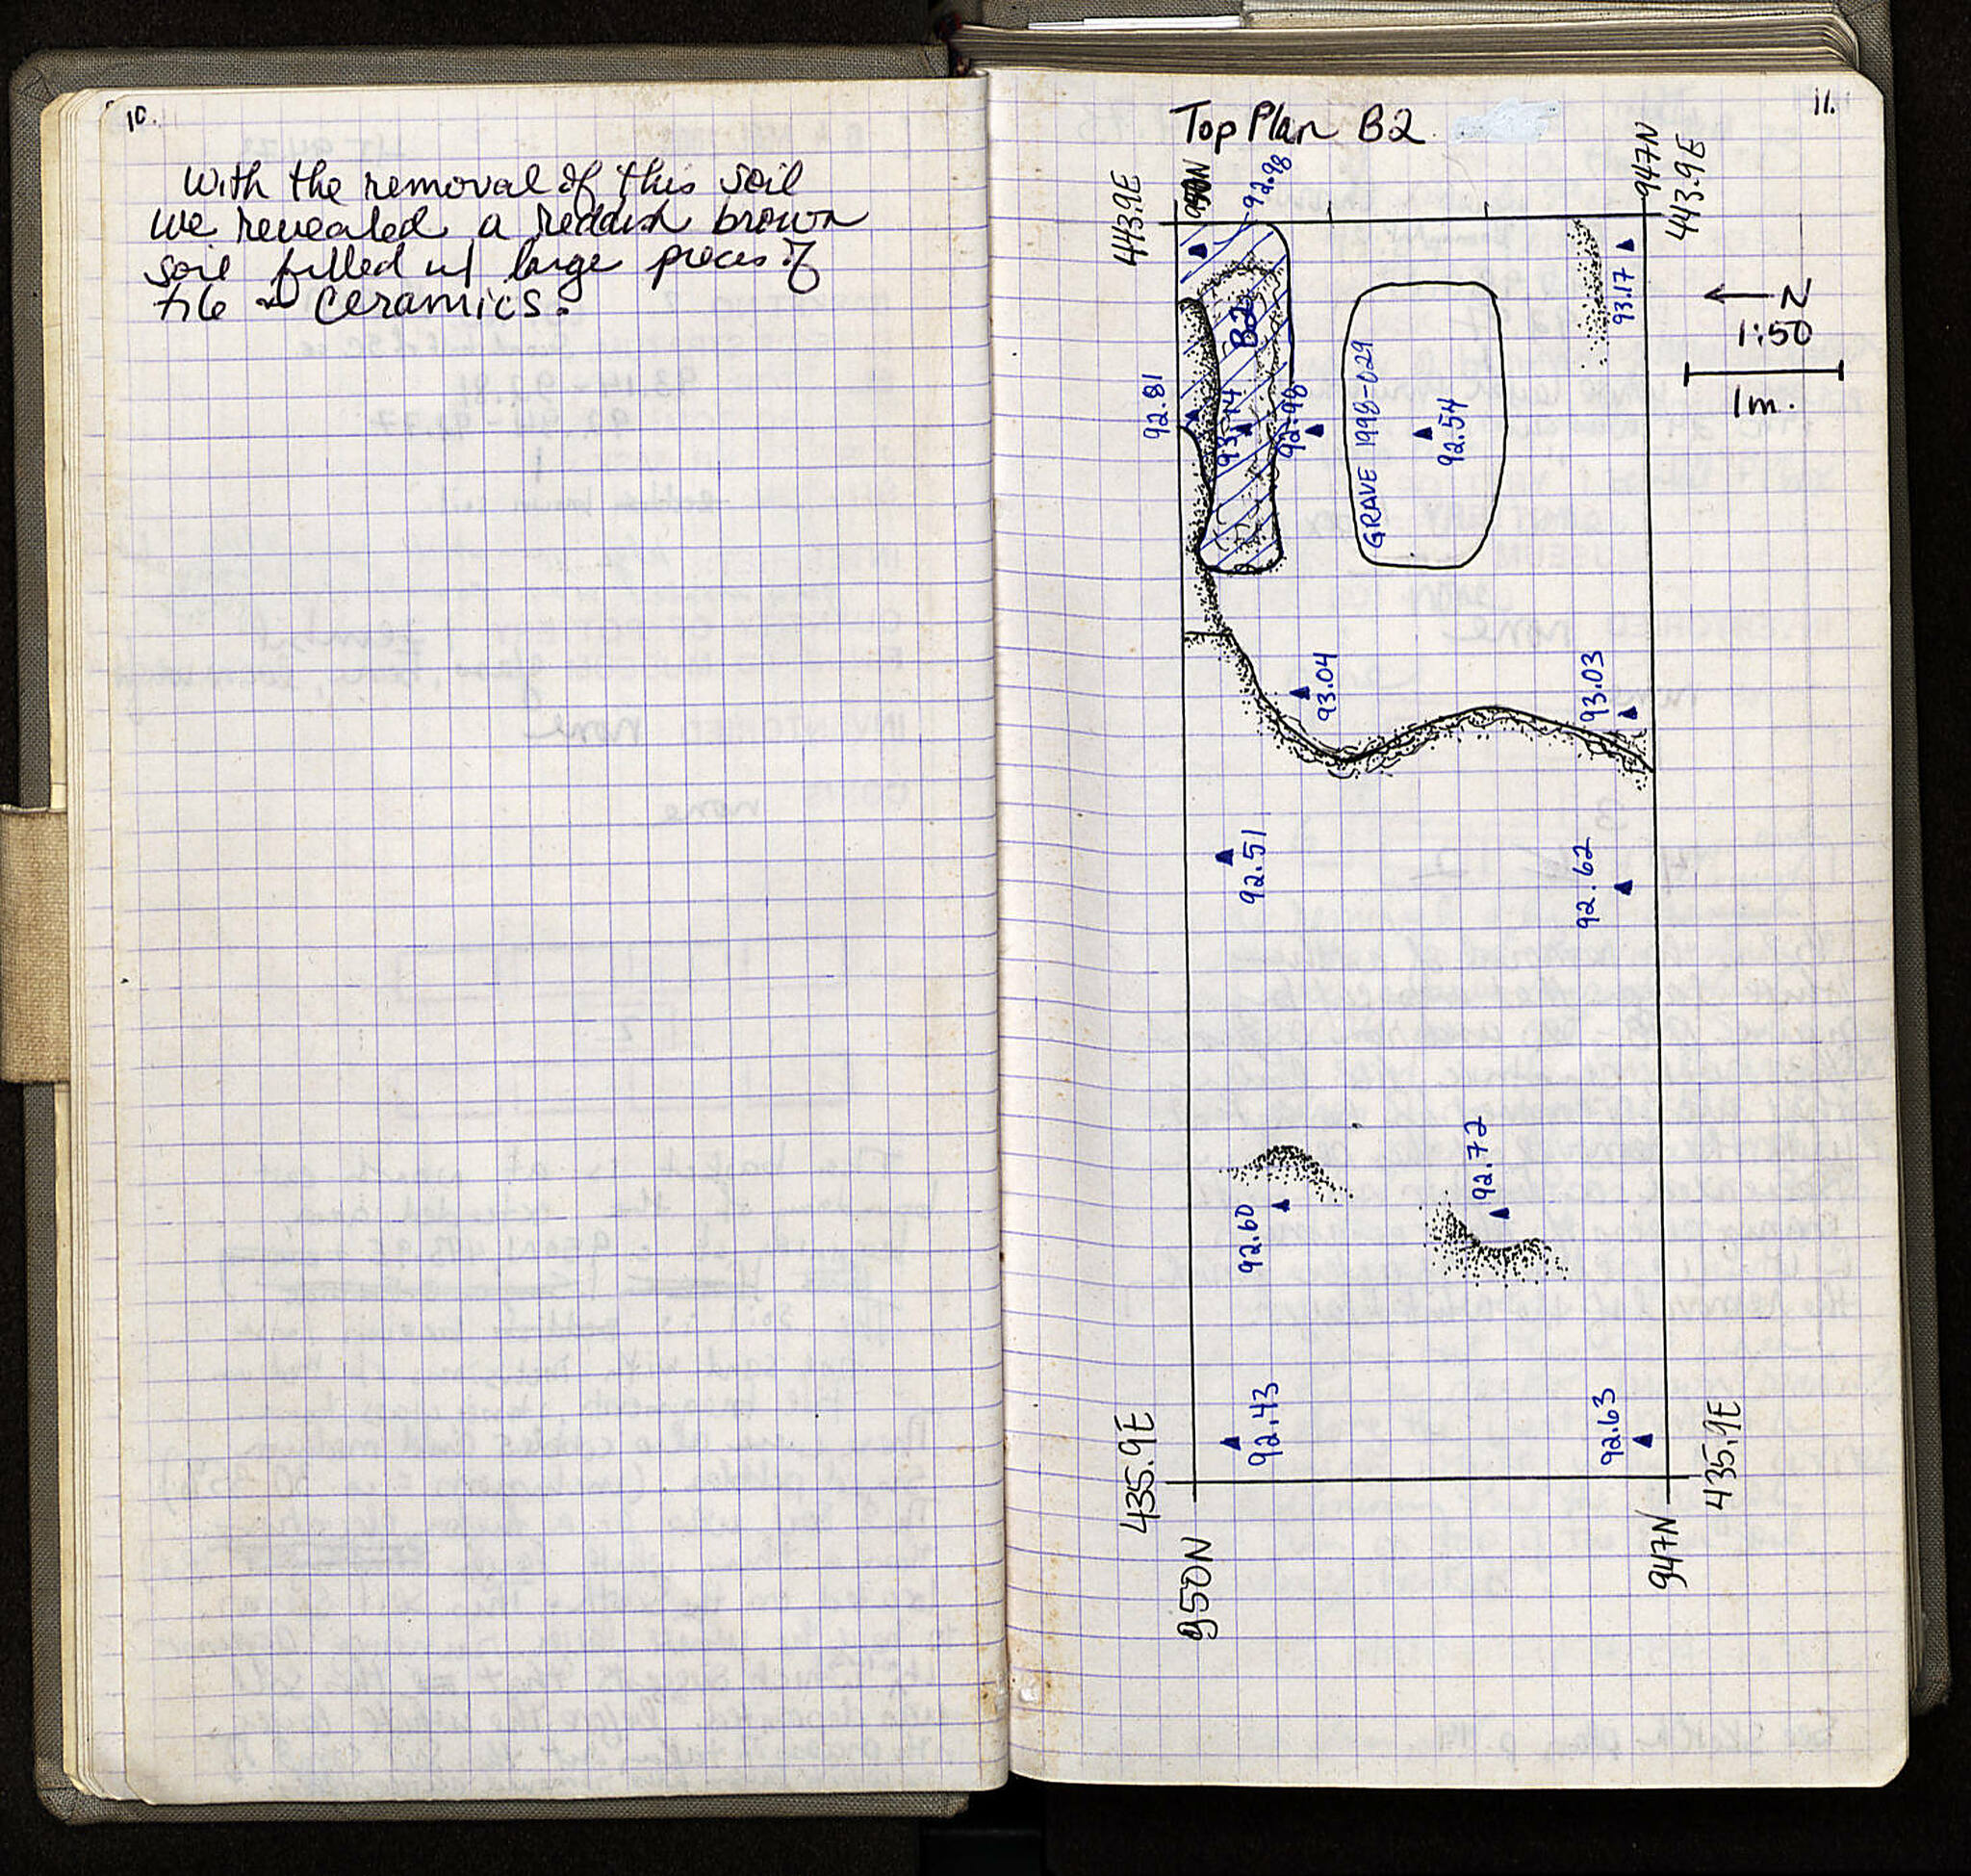 10.
with the removal of this soil
we revealed a reddish brown
soil filled w/ large pieces of
tile & ceramics.
11.
Top Plan B2
443.9E
950N
92.98
947N
443.9E
93.17
N
1:50
1m.
B2
92.81
93.14
92.98
GRAVE 1998-029
92.54
93.04
93.03
92.51
92.62
92.60
92.72
92.43
92.63
435.9E
950N
947N
435.9E